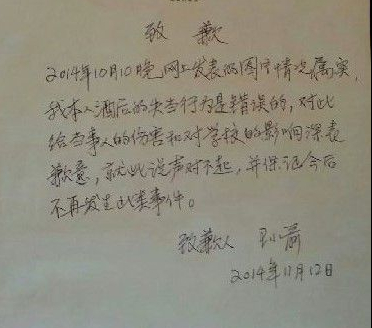 致歉
2014年10月10晚,网上发表的图片情况属实,
我本人酒后的失当行为是错误的,对此
给当事人的伤害和对学校的影响深表
歉意,就此说声对不起,并保证今后
不再发生此类事件。
致歉人
2014年11月12日